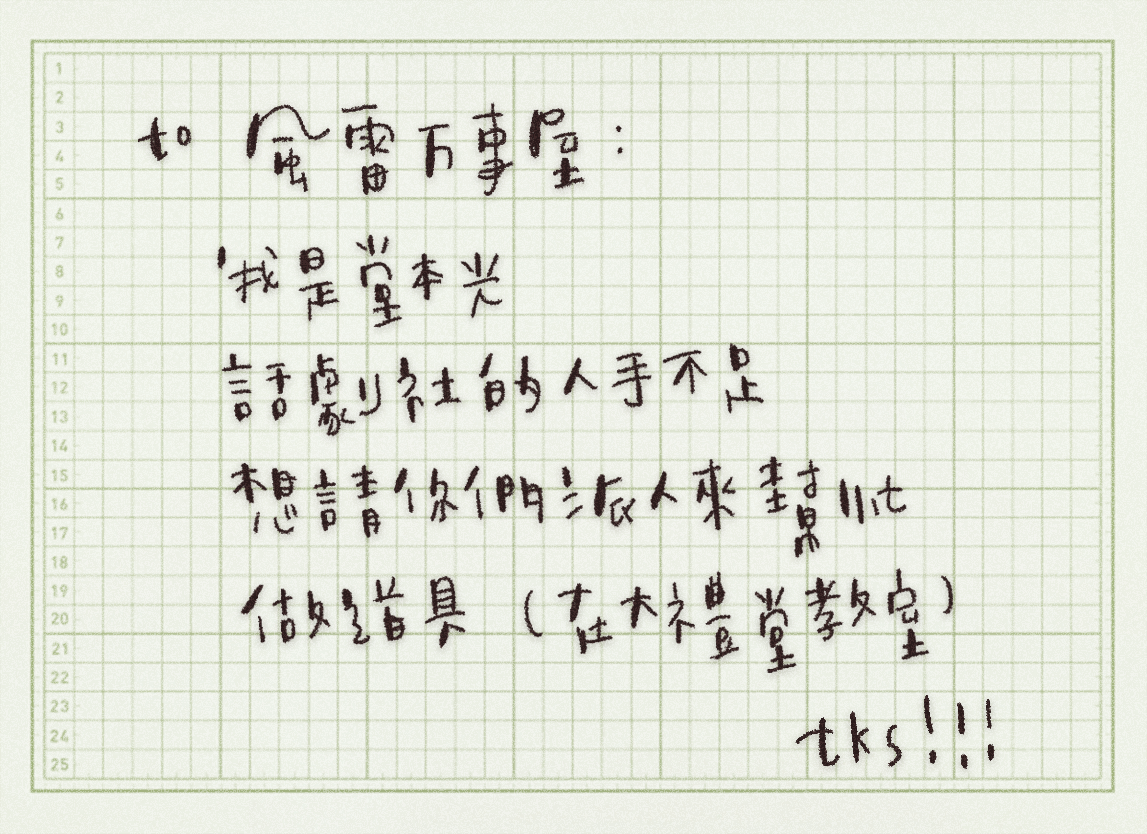 to 風雷万事屋:
我是堂本光
話劇社的人手不足
想請你們派人來幫忙
做道具 (在大禮堂教室)
tks!!!
1
2
3
4
5
6
7
8
9
10
11
12
13
14
15
16
17
18
19
20
21
22
23
24
25